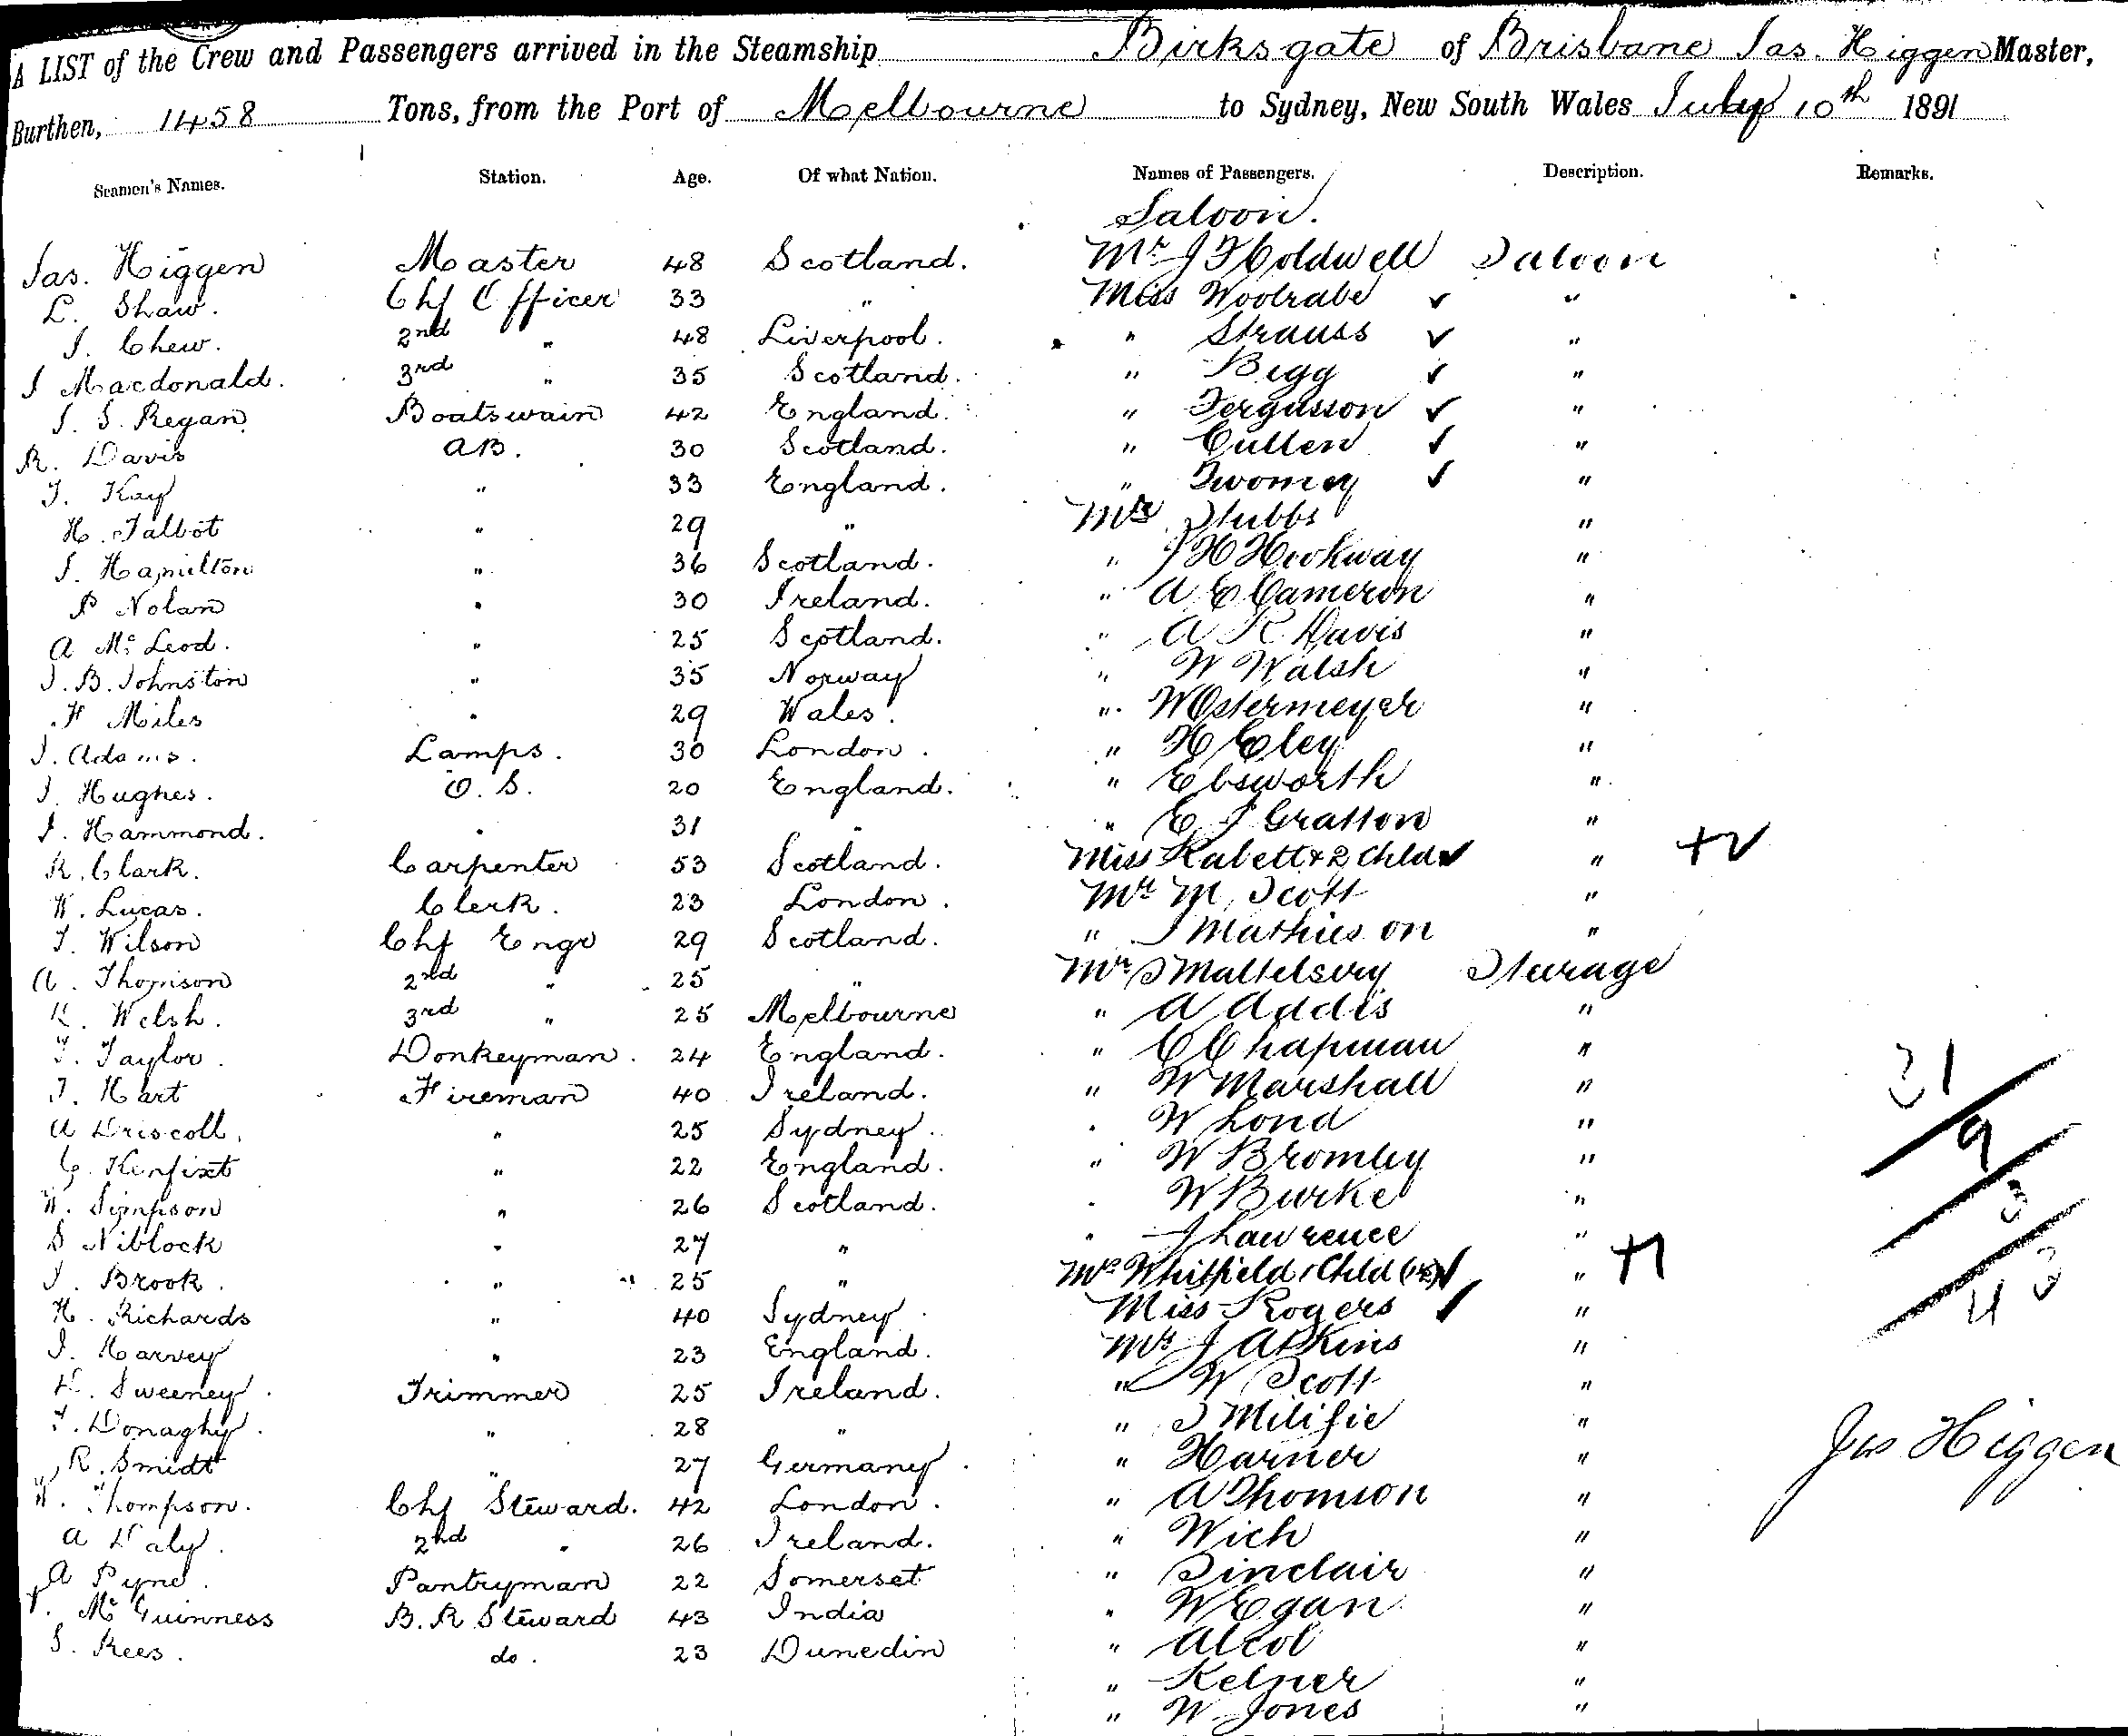 A LIST of the Crew and Passengers arrived in the Steamship Birksgate of Brisbane Jas. Higgen Master,
Burthen, 1458 Tons, from the Port of Melbourne to Sydney, New South Wales July 10th 1891
Seamen's Names. Station. Age. Of what Nation. Names of Passengers. Description. Remarks.
Saloon.
Jas. Higgen Master 48 Scotland. Mr J F Holdwell Saloon
L. Shaw. Chf Officer 33 " Miss Woolrabe ✓ "
J. Chew. 2nd " 48 Liverpool. " Strauss ✓ "
J Macdonald. 3rd " 35 Scotland. " Begg ✓ "
J. S. Regan Boatswain 42 England. " Fergusson ✓ "
R. Davis AB. 30 Scotland. " Cullen ✓ "
T. Kay " 33 England. " Twomey ✓ "
H. Talbot " 29 " Mr Stubbs "
J. Hamilton " 36 Scotland. " J H Hookway "
P Nolan " 30 Ireland. " A E Cameron "
A McLeod. " 25 Scotland. " A R Davis "
J. B. Johnston " 35 Norway " W Walsh "
F Miles " 29 Wales. " W Ostermeyer "
J. Adams. Lamps. 30 London. " H Eley "
J. Hughes. O. S. 20 England. " Ebsworth "
J. Hammond. " 31 " " E J Gratton "
R. Clark. Carpenter 53 Scotland. Miss Kabett & 2 Chld ✓ " +2
W. Lucas. Clerk. 23 London. Mr M. Scott "
T. Wilson Chf Engr 29 Scotland. " J Mathieson "
A. Thomson 2nd " 25 " Mr S Steerage
R. Welsh. 3rd " 25 Melbourne " A Addis "
T. Taylor. Donkeyman. 24 England. " C Chapman "
T. Hart Fireman 40 Ireland. " W Marshall "
A Driscoll. " 25 Sydney. " W Lond "
C. " 22 England. " W Bromley "
W. Simpson " 26 Scotland. " W Burke "
S Niblock " 27 " " J Lawrence "
J. Brook. " 25 " Mrs Whitfield & Chld ✓ " +1
H. Richards " 40 Sydney. Miss Rogers ✓ "
J. Harvey " 23 England. Mr J Atkins "
D. Sweeney. Trimmer 25 Ireland. " W Scott "
T. Donaghy. " 28 " " S Milifie "
R. Smidt " 27 Germany. " Harner "
W. Thompson. Chf Steward. 42 London. " A Thomson "
A Daly. 2nd " 26 Ireland. " Wich "
A Pyne. Pantryman 22 Somerset " Sinclair "
McGuinness B. R Steward 43 India " W Egan "
S. Rees. do. 23 Dunedin " Alcol "
" Kelner "
" W Jones "
31
9
3
43
Jas Higgen